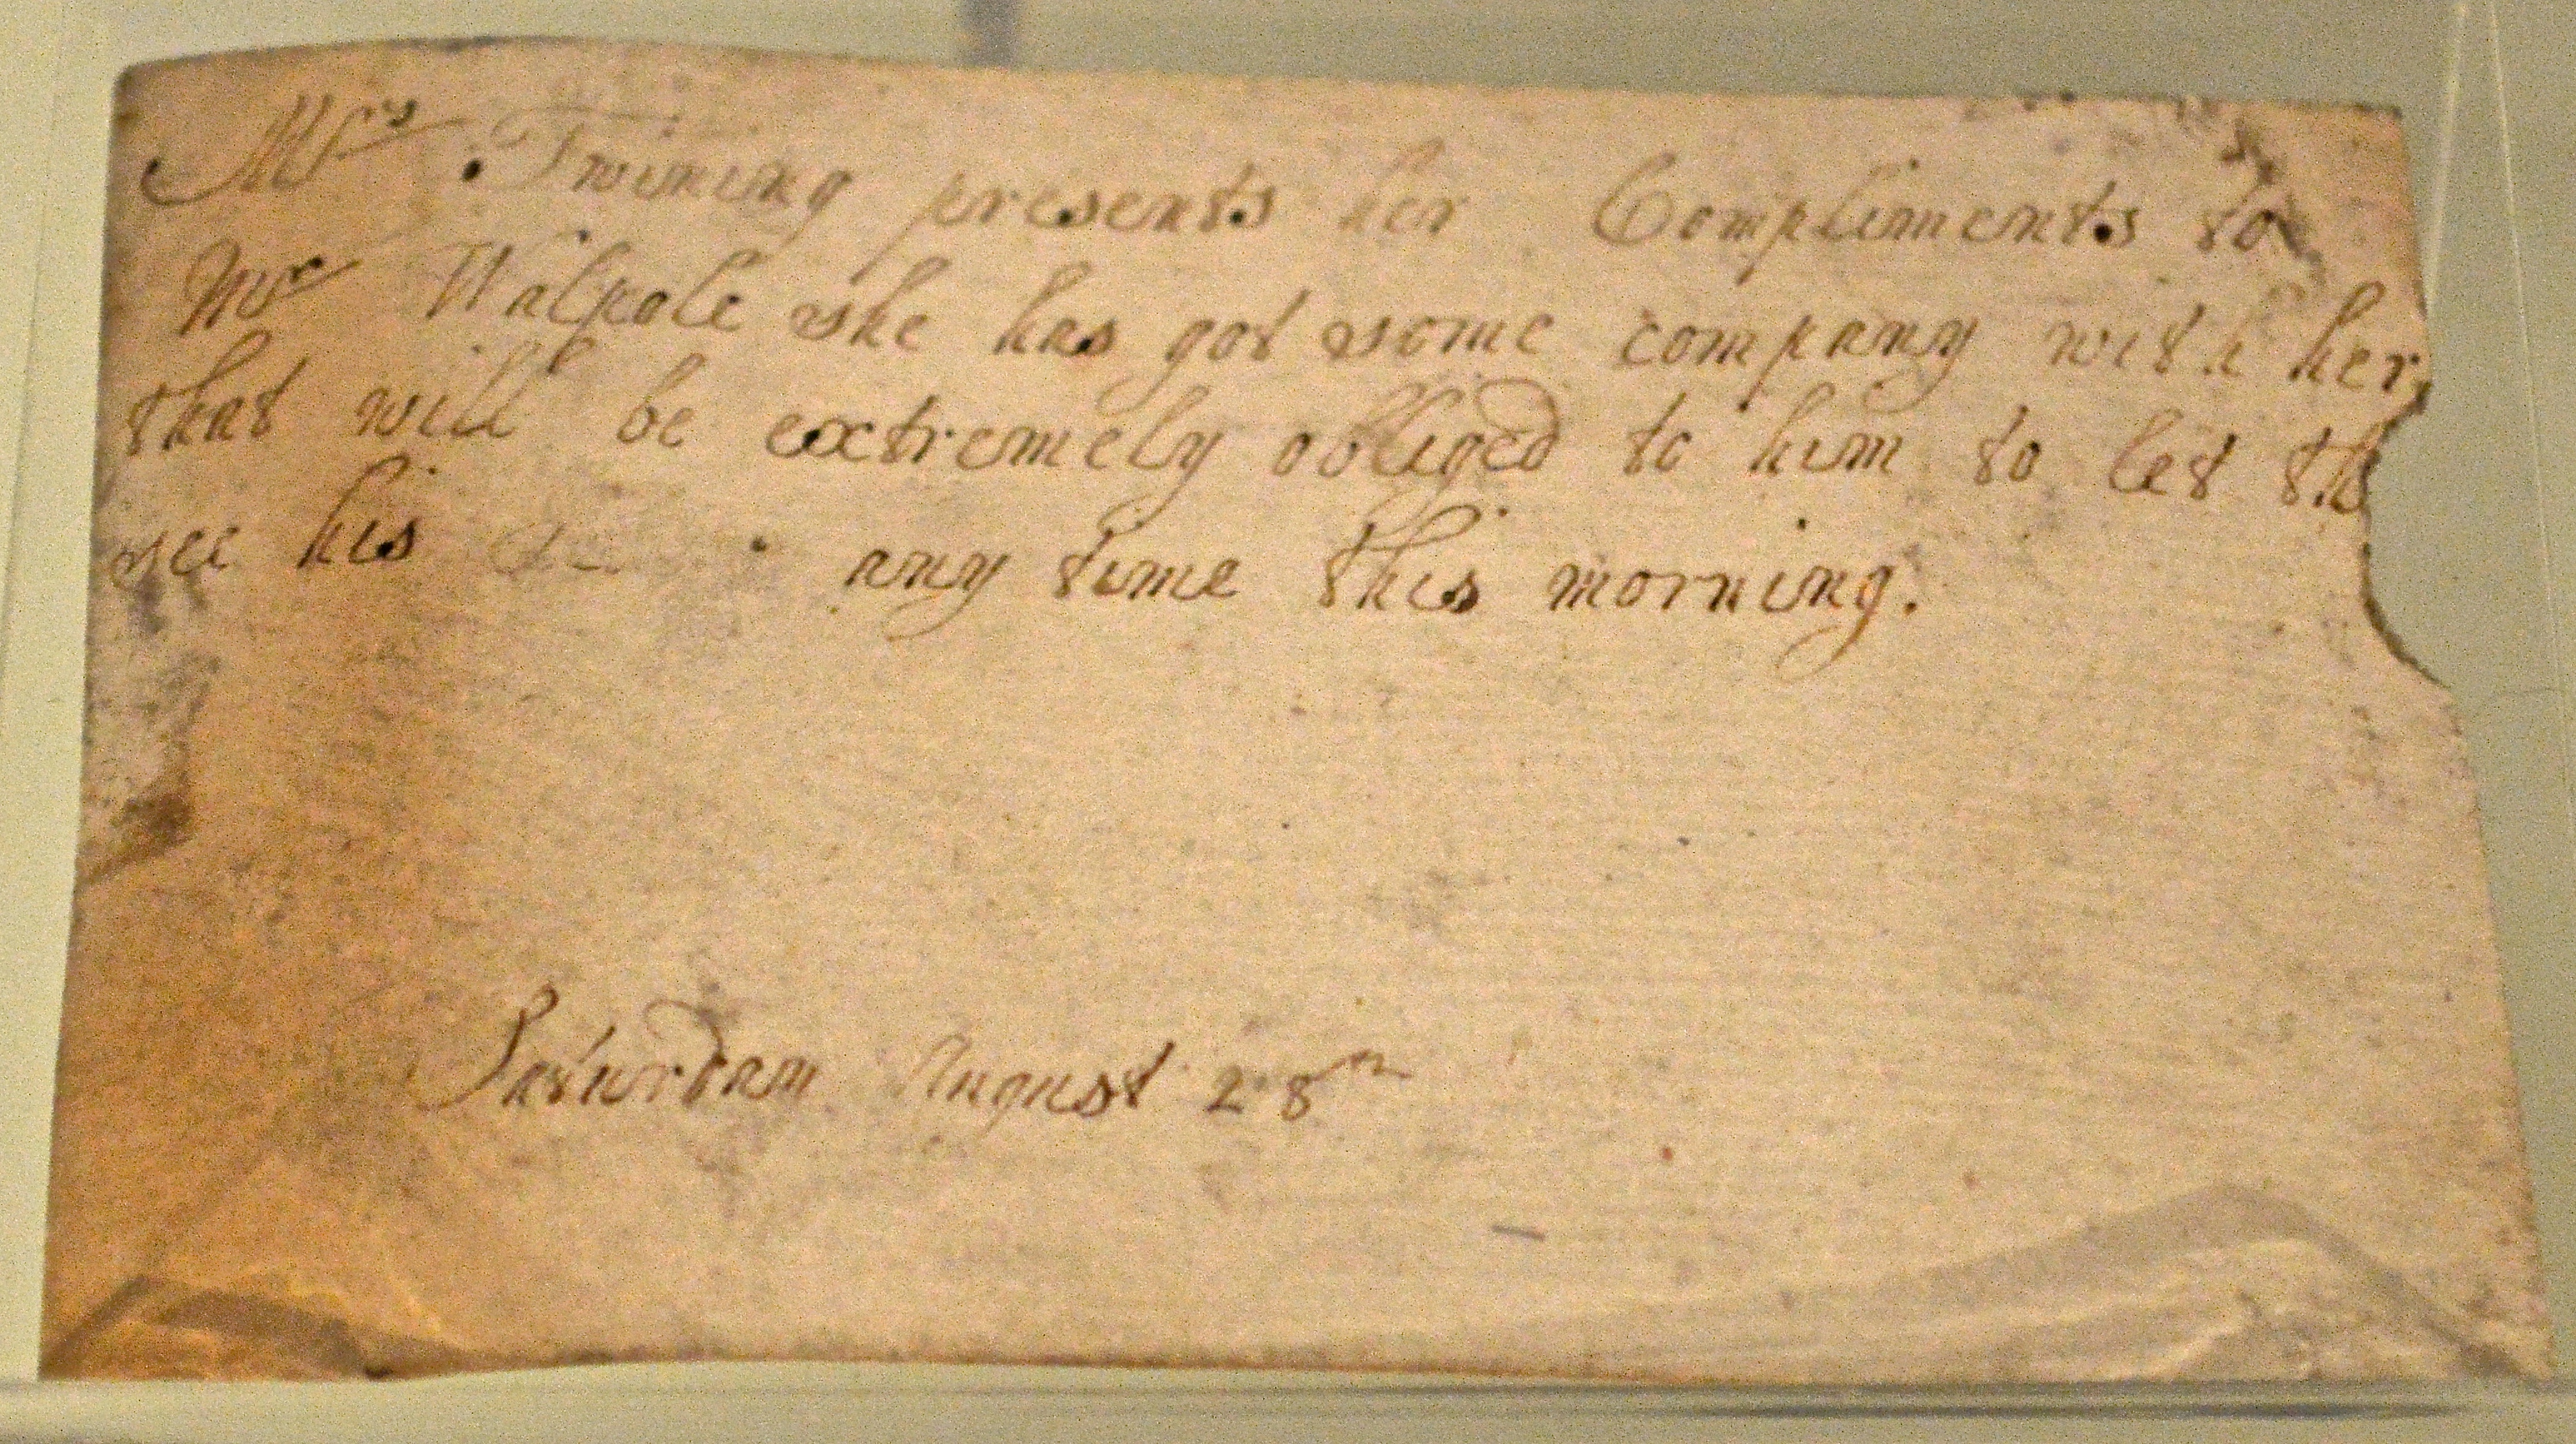 Mrs Twining presents her Compliments to
Mr Walpole she has got some company with her,
that will be extremely obliged to him to let
see his any time this morning.
Saturdam August 28th